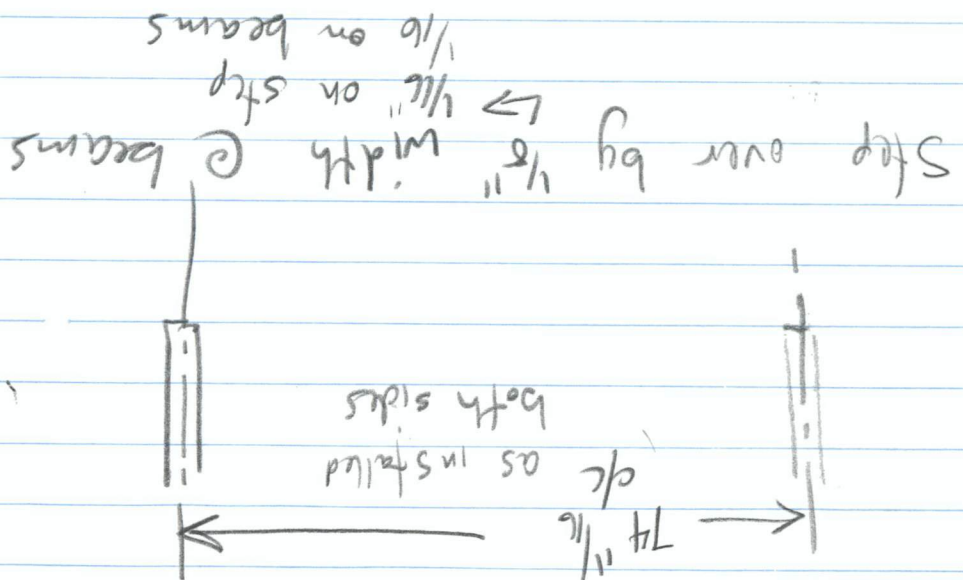 74 11/16"
c/c as installed
both sides
Step over by 1/8" width @ beams
↳ 1/16" on step
1/16 on beams